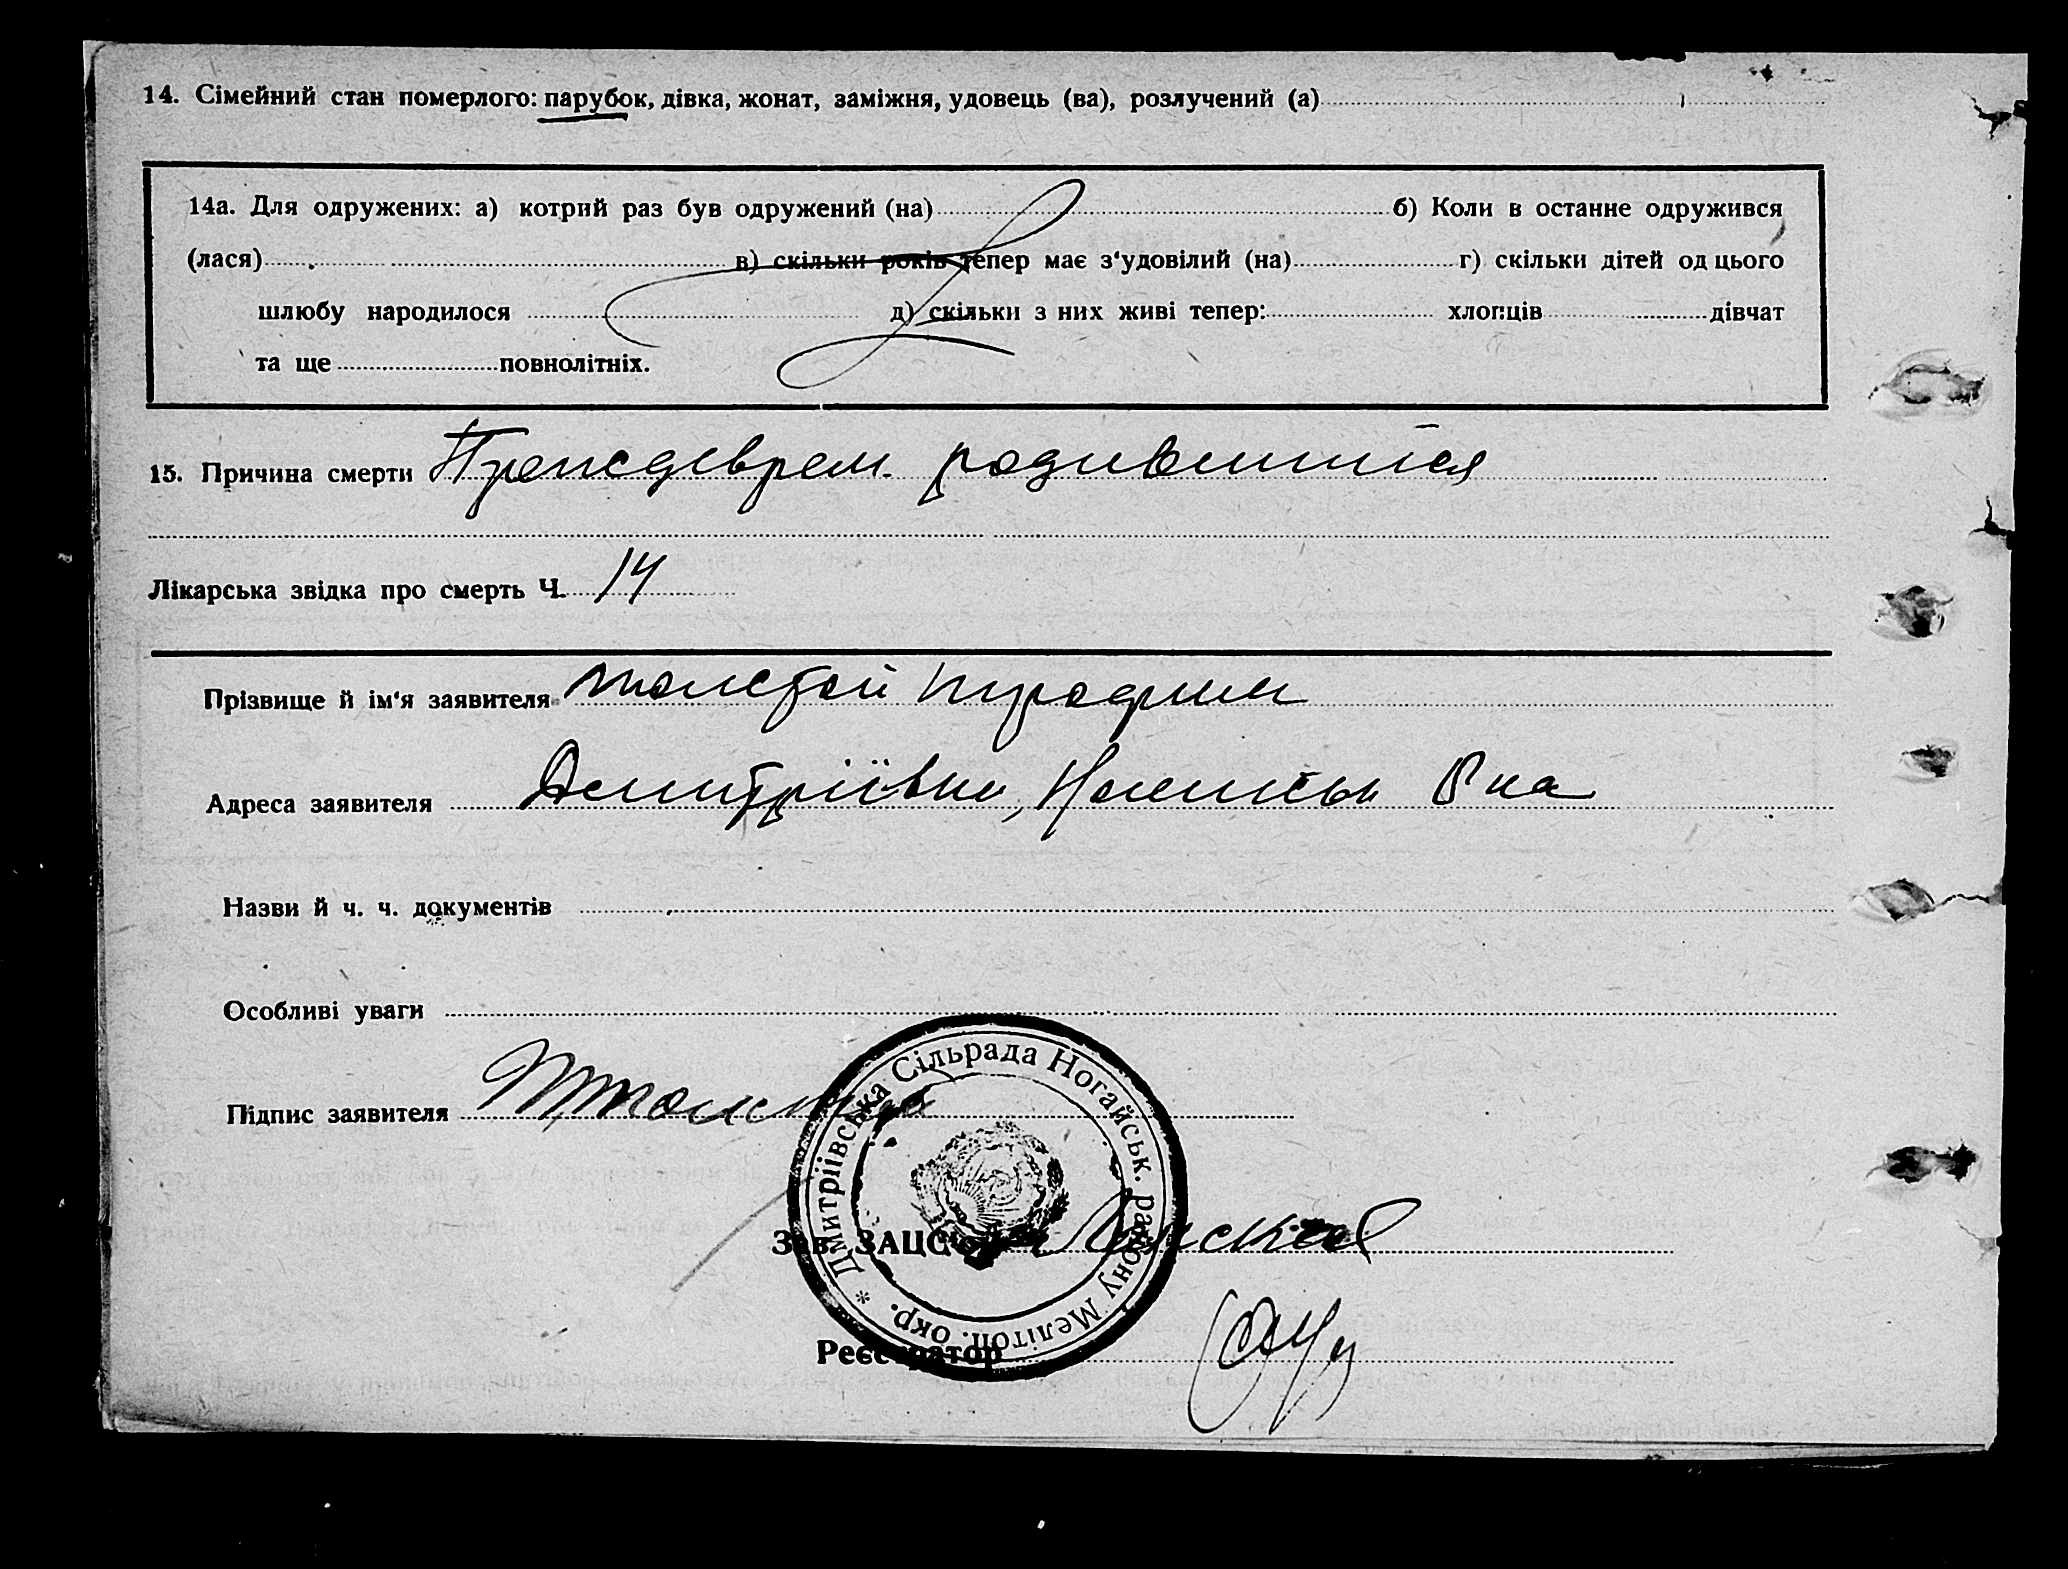 14. Сімейний стан померлого: парубок, дівка, жонат, заміжня, удовець (ва), розлучений (а)
14а. Для одружених: а) котрий раз був одружений (на) б) Коли в останне одружився
(лася) в) скільки років тепер має з'удовілий (на) г) скільки дітей од цього
шлюбу народилося д) скільки з них живі тепер: хлопців дівчат
та ще повнолітніх.
15. Причина смерти Преждеврем. родившийся
Лікарська звідка про смерть Ч. 14
Прізвище й ім'я заявителя Толстой Трофим
Адреса заявителя Дмитріївка,
Назви й ч. ч. документів
Особливі уваги
Підпис заявителя Толстой
Дмитріївська Сільрада Ногайськ. району Мелітоп. окр. *
Зав. ЗАЦС
Реєстратор